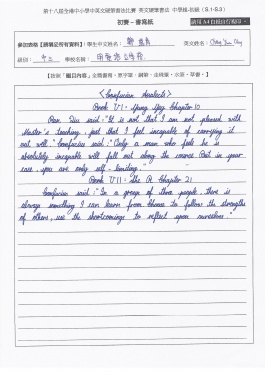 第十八屆全港中小學中英文硬筆書法比賽 英文硬筆書法 中學組-初級 (S.1-S.3)
初賽 - 書寫紙
請用 A4 白紙自行影印
參加表格【請填妥所有資料】: 學生中文姓名:
英文姓名:
級別: 中二 學校名稱:
《Confucian Analects》
Book VI: Yong Yey Chapter 10
Ran Qiu said: "It is not that I am not pleased with
Master's teaching, just that I feel incapable of carrying it
out well." Confucius said: "Only a man who feels he is
absolutely incapable will fall out along the course. But in your
case, you are only self-limiting."
Book VII: Shu Er Chapter 21
Confucius said: "In a group of three people, there is
always something I can learn from. Choose to follow the strengths
of others, use the shortcomings to reflect upon ourselves."